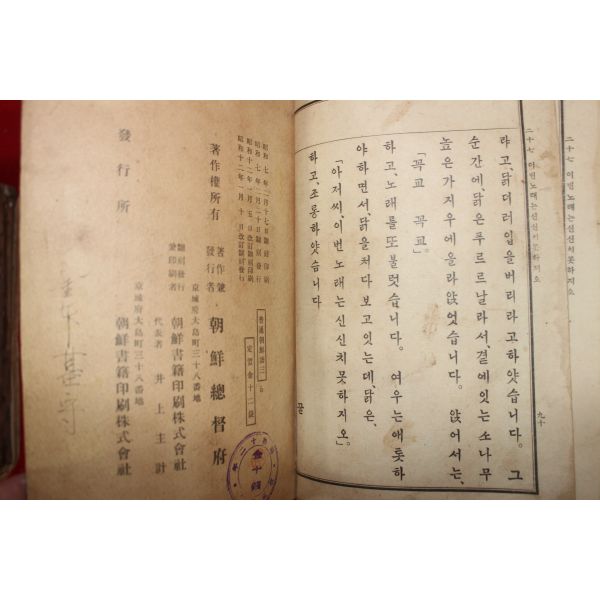 二十七 이번노래는신신치못하지오
二十七 이번노래는신신치못하지오
九十
라고、닭더러입을버리라고하얏습니다。 그
순간에、닭은푸르르날라서、겯에잇는소나무
높은가지우에올라앉엇습니다。 앉어서는、
「꼭교 꼭교。」
하고、노래를또불럿습니다。 여우는애롯하
야하면서、닭을처다보고잇는데、닭은、
「아저씨、이번노래는신신치못하지오。」
하고、조롱하얏습니다
끝
昭和七年二月十七日飜刻印刷
昭和七年二月二十日飜刻發行
昭和十二年一月五日改訂飜刻印刷
昭和十二年一月十日改訂飜刻發行
定價金十二錢
著作權所有
著作兼
發行者
朝鮮總督府
京城府大島町三十八番地
飜刻發行
兼印刷者
朝鮮書籍印刷株式會社
代表者 井上主計
京城府大島町三十八番地
發行所
朝鮮書籍印刷株式會社